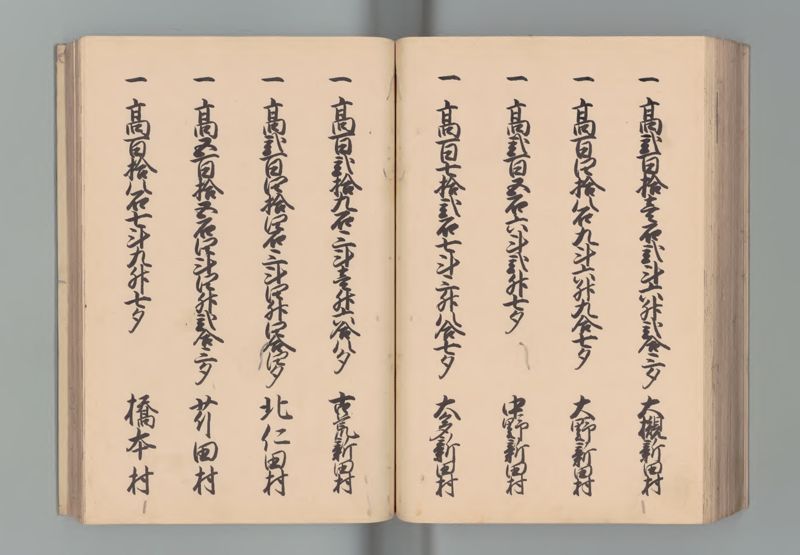 一 高弐百拾壱石弐斗六升弐合三夕 大槻新田村
一 高百四拾八石九斗六升九合七夕 大野新田村
一 高弐百五石六斗弐升七夕 中野新田村
一 高百七拾弐石七斗三升八合七夕 太多新田村
一 高百弐拾九石三斗壱升六合八夕 古荒新田村
一 高弐百四拾四石三斗四升四合四夕 北仁田村
一 高五百拾五石四斗四升弐合三夕 苅田村
一 高百拾八石七斗九升七夕 橋本村